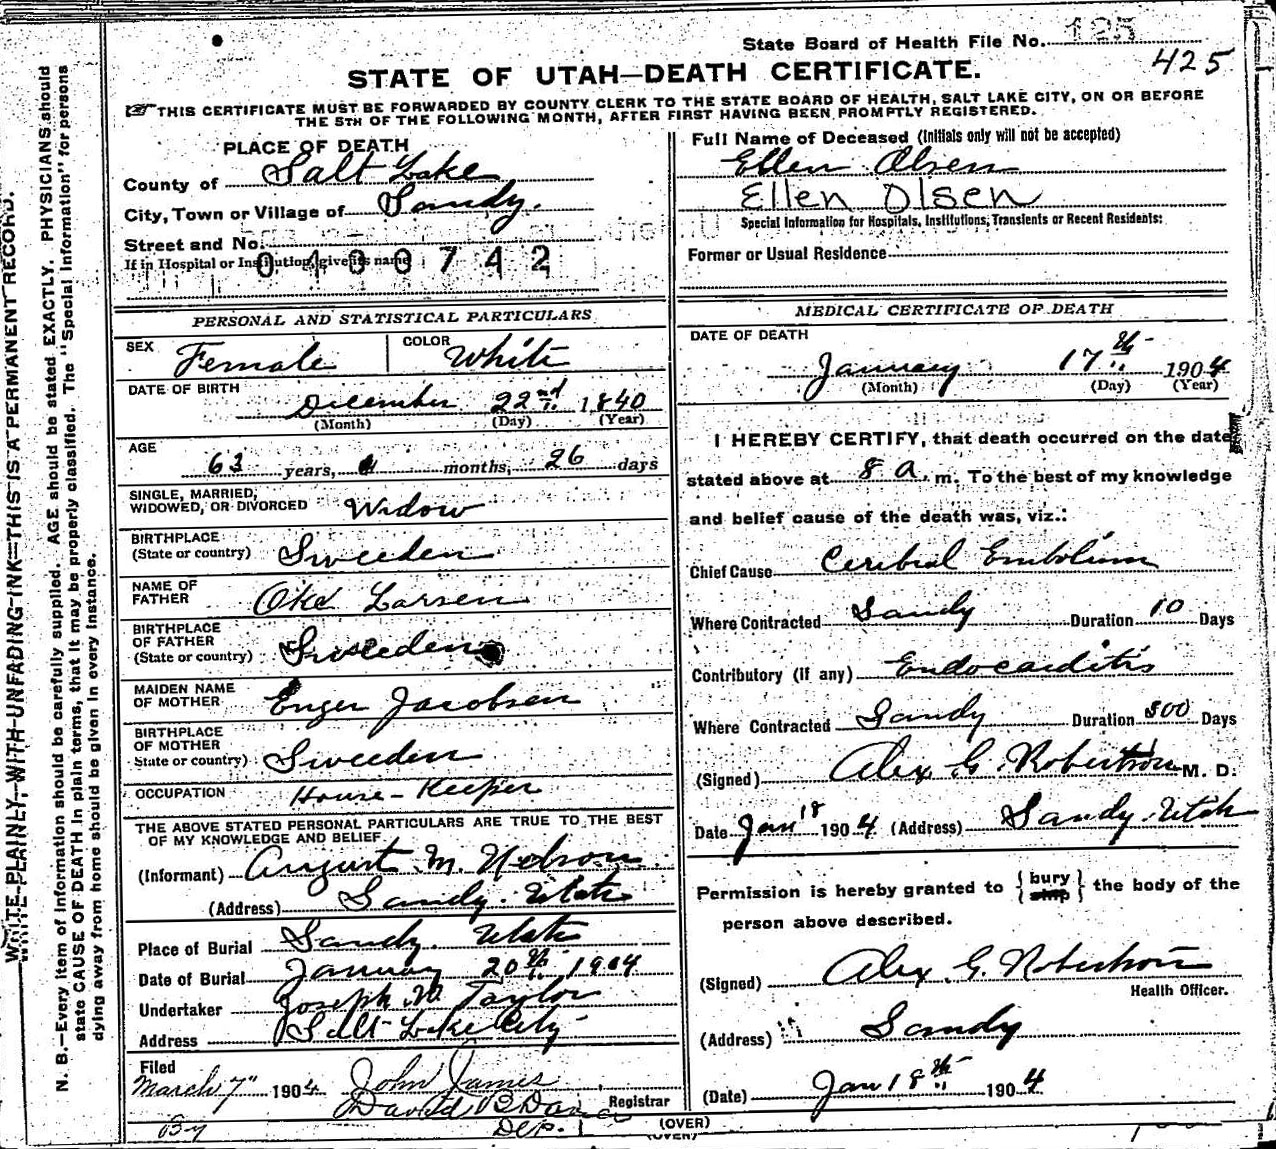 State Board of Health File No. 125
425
STATE OF UTAH—DEATH CERTIFICATE.
☞THIS CERTIFICATE MUST BE FORWARDED BY COUNTY CLERK TO THE STATE BOARD OF HEALTH, SALT LAKE CITY, ON OR BEFORE
THE 5TH OF THE FOLLOWING MONTH, AFTER FIRST HAVING BEEN PROMPTLY REGISTERED.
WRITE PLAINLY, WITH UNFADING INK—THIS IS A PERMANENT RECORD.
N. B.—Every item of information should be carefully supplied. AGE should be stated EXACTLY. PHYSICIANS should
state CAUSE OF DEATH in plain terms, that it may be properly classified. The "Special Information" for persons
dying away from home should be given in every instance.
PLACE OF DEATH
County of Salt Lake
City, Town or Village of Sandy.
Street and No.
If in Hospital or Institution, give its name
0400742
PERSONAL AND STATISTICAL PARTICULARS
SEX Female COLOR White
DATE OF BIRTH
December 22nd 1840
(Month) (Day) (Year)
AGE
63 years, months, 26 days
SINGLE, MARRIED,
WIDOWED, OR DIVORCED Widow
BIRTHPLACE
(State or country) Sweeden
NAME OF
FATHER Oke Larsen
BIRTHPLACE
OF FATHER
(State or country) Sweeden
MAIDEN NAME
OF MOTHER Enger Jacobsen
BIRTHPLACE
OF MOTHER
State or country) Sweeden
OCCUPATION House-Keeper
THE ABOVE STATED PERSONAL PARTICULARS ARE TRUE TO THE BEST
OF MY KNOWLEDGE AND BELIEF
(Informant) August M. Nelson
(Address) Sandy. Utah
Place of Burial Sandy. Utah
Date of Burial January 20th 1904
Undertaker Joseph W. Taylor
Address Salt Lake City
Filed
March 7" 1904 John James
David B Davies Registrar
By Dep.
Full Name of Deceased (Initials only will not be accepted)
Ellen Olsen
Ellen Olsen
Special Information for Hospitals, Institutions, Transients or Recent Residents:
Former or Usual Residence
MEDICAL CERTIFICATE OF DEATH
DATE OF DEATH
January 17th 1904
(Month) (Day) (Year)
I HEREBY CERTIFY, that death occurred on the date
stated above at 8 a. m. To the best of my knowledge
and belief cause of the death was, viz.:
Chief Cause Cerebral Embolism
Where Contracted Sandy Duration 10 Days
Contributory (if any) Endocarditis
Where Contracted Sandy Duration 300 Days
(Signed) Alex G. Robertson M. D.
Date Jan 18 1904 (Address) Sandy Utah
Permission is hereby granted to { bury ship } the body of the
person above described.
(Signed) Alex. G. Robertson
Health Officer.
(Address) Sandy
(Date) Jan 18th 1904
(OVER)
(OVER)